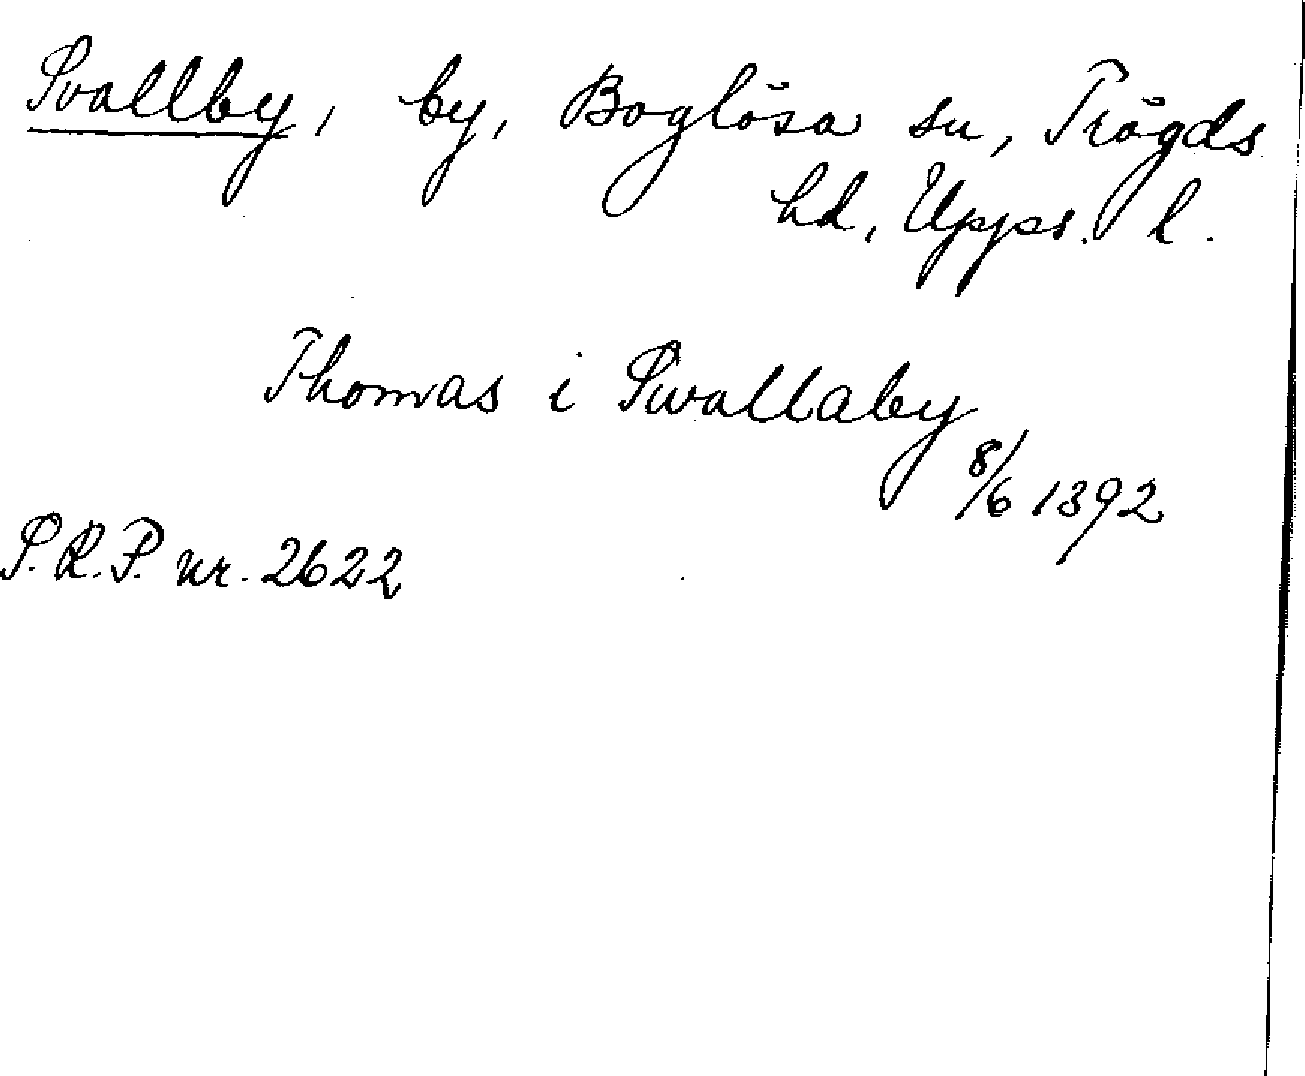 Svallby, by, Boglösa sn, Trögds
hd, Upps. l.
Thomas i Swallaby
8/6 1392
S.R.P. nr. 2622